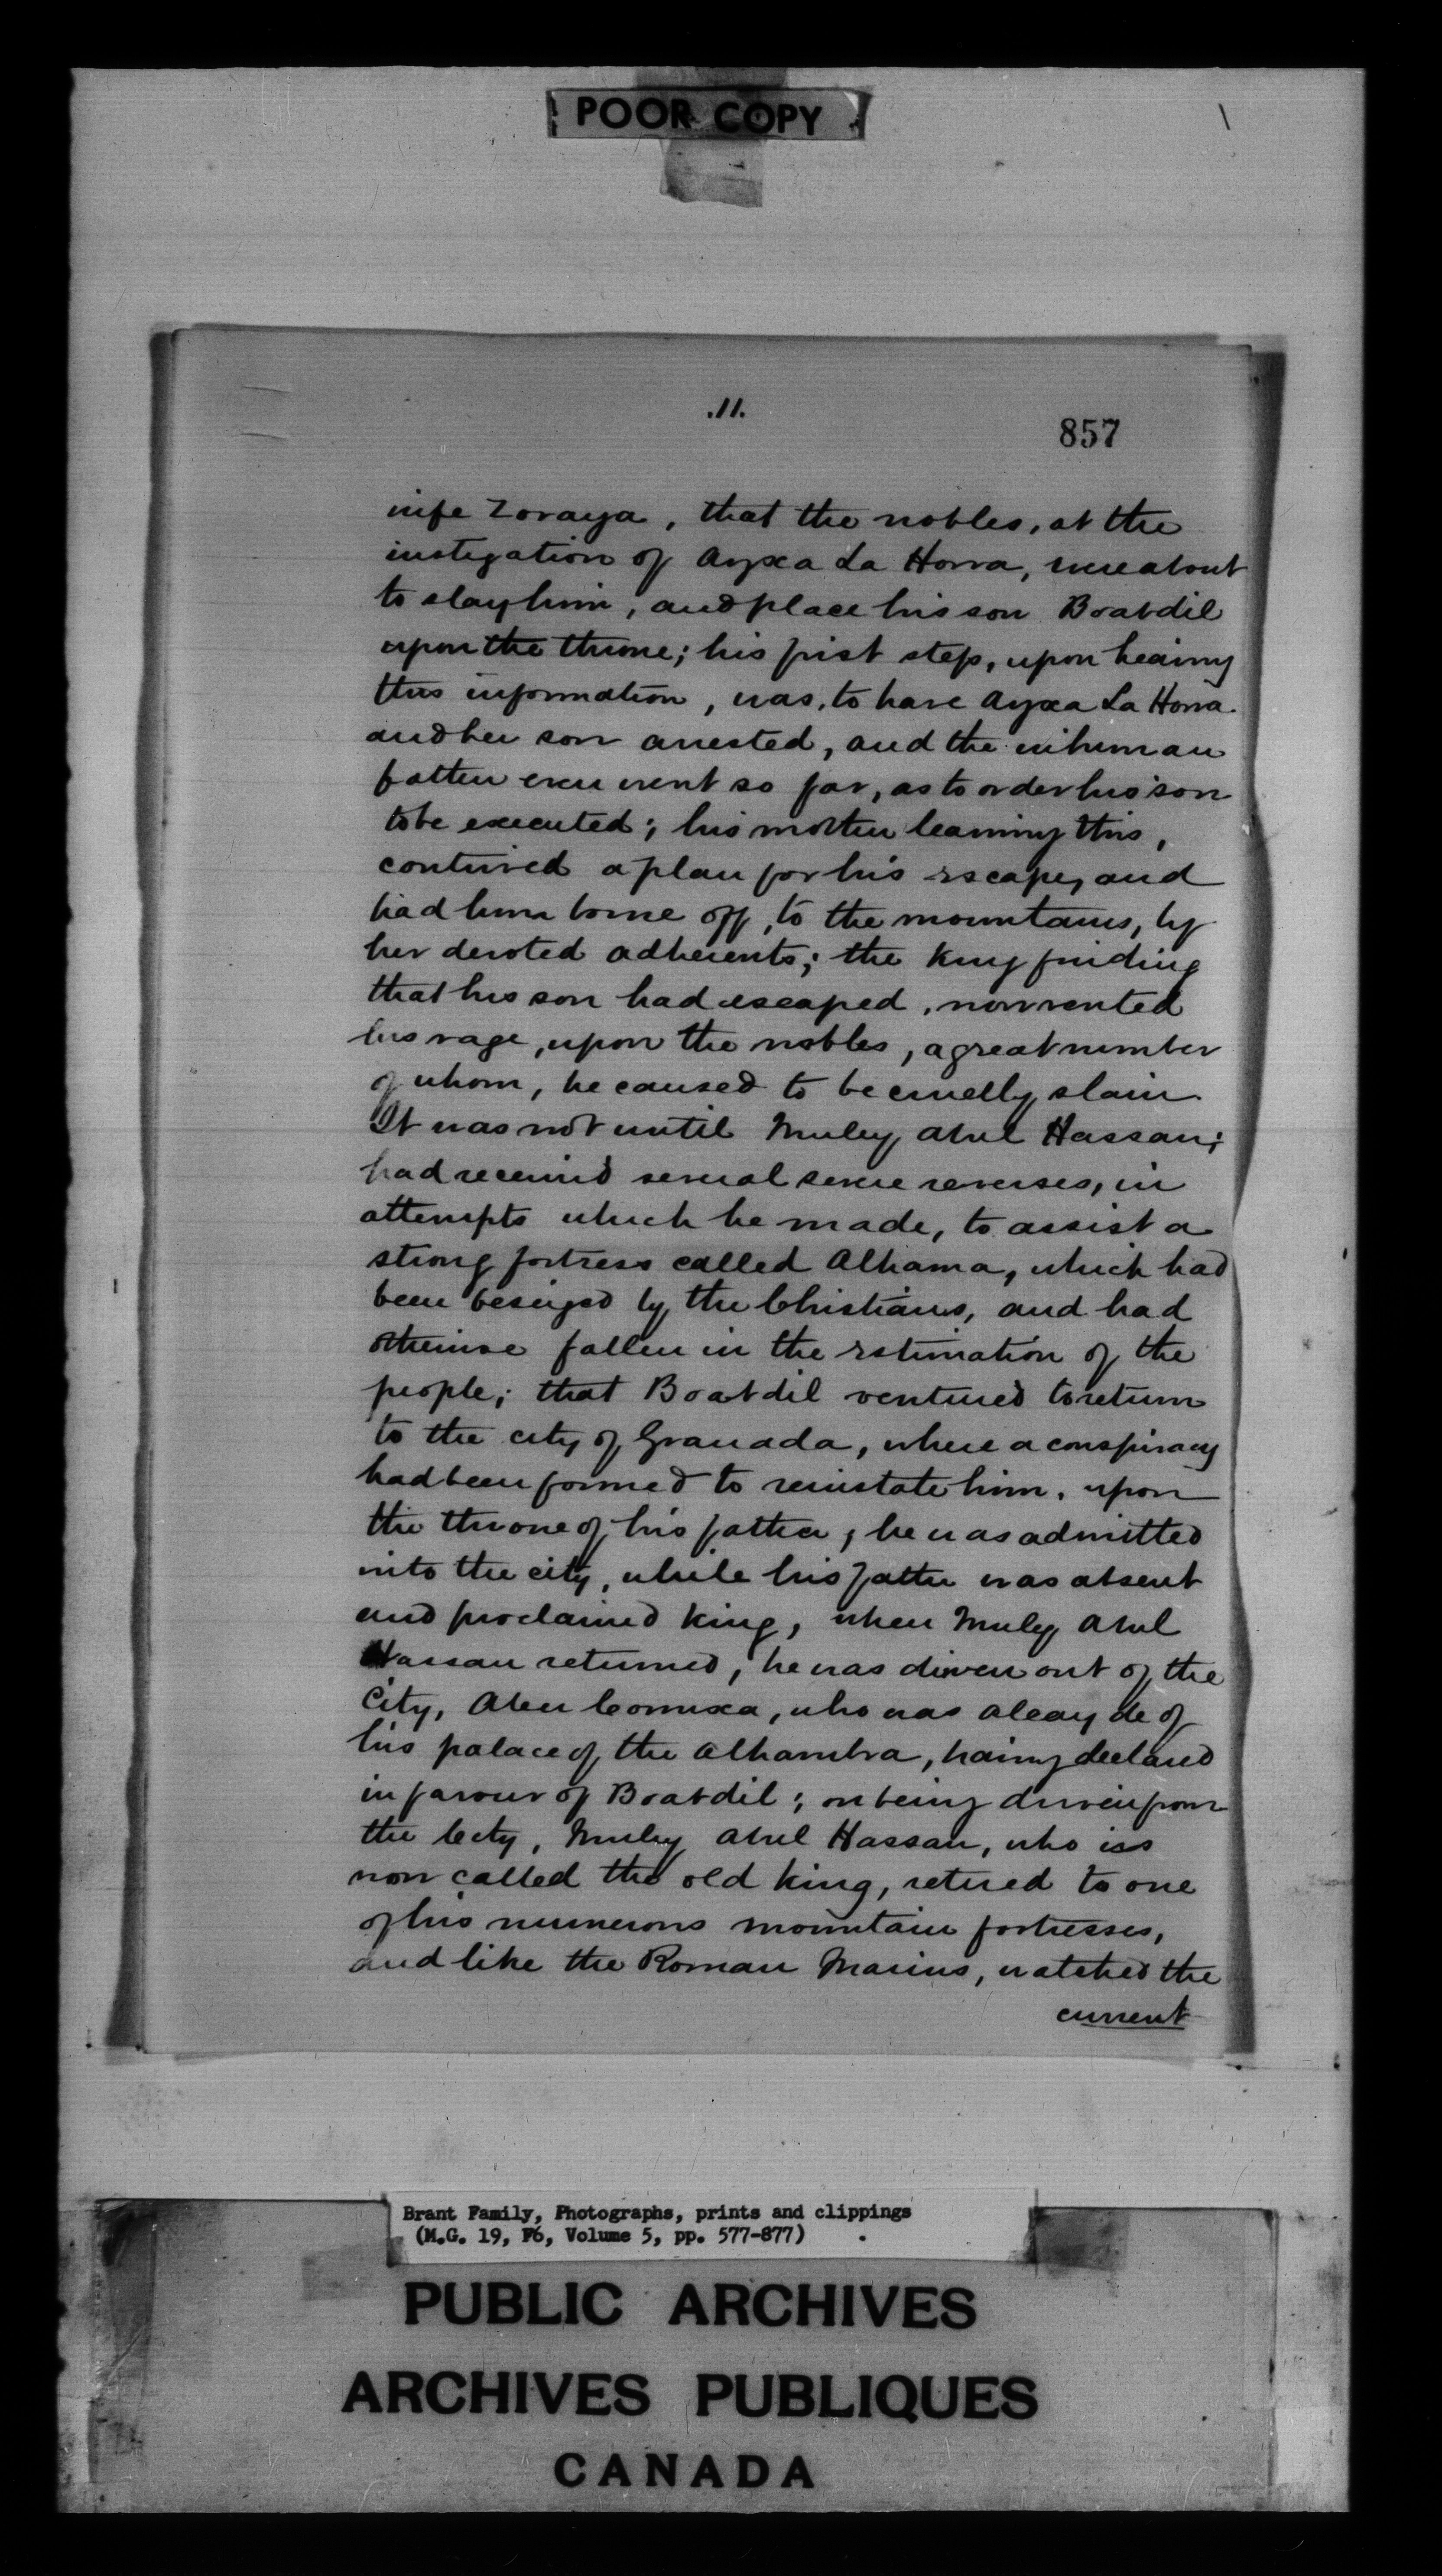 POOR COPY
.11.
857
wife Zoraya, that the nobles, at the
instigation of Ayxa La Horra, were about
to slay him, and place his son Boabdil
upon the throne; his first step, upon hearing
this information, was, to have Ayxa La Horra
and her son arrested, and the inhuman
father even went so far, as to order his son
to be executed; his mother learning this,
contrived a plan for his escape, and
had him borne off, to the mountains, by
her devoted adherents; the King finding
that his son had escaped, now vented
his rage, upon the nobles, a great number
of whom, he caused to be cruelly slain.
It was not until Muley Abul Hassan;
had received several severe reverses, in
attempts which he made, to assist a
strong fortress called Alhama, which had
been beseiged by the Christians, and had
otherwise fallen in the estimation of the
people; that Boabdil ventured to return
to the city of Granada, where a conspiracy
had been formed to reinstate him, upon
the throne of his father, he was admitted
into the city, while his father was absent
and proclaimed King, when Muley Abul
Hassan returned, he was driven out of the
City, Aben Comixa, who was alcayde of
his palace of the Alhambra, having declared
in favour of Boabdil; on being driven from
the City, Muley Abul Hassan, who is
now called the old King, retired to one
of his numerous mountain fortresses,
and like the Roman Marius, watched the
current
Brant Family, Photographs, prints and clippings
(M.G. 19, F6, Volume 5, pp. 577-877)
PUBLIC ARCHIVES
ARCHIVES PUBLIQUES
CANADA